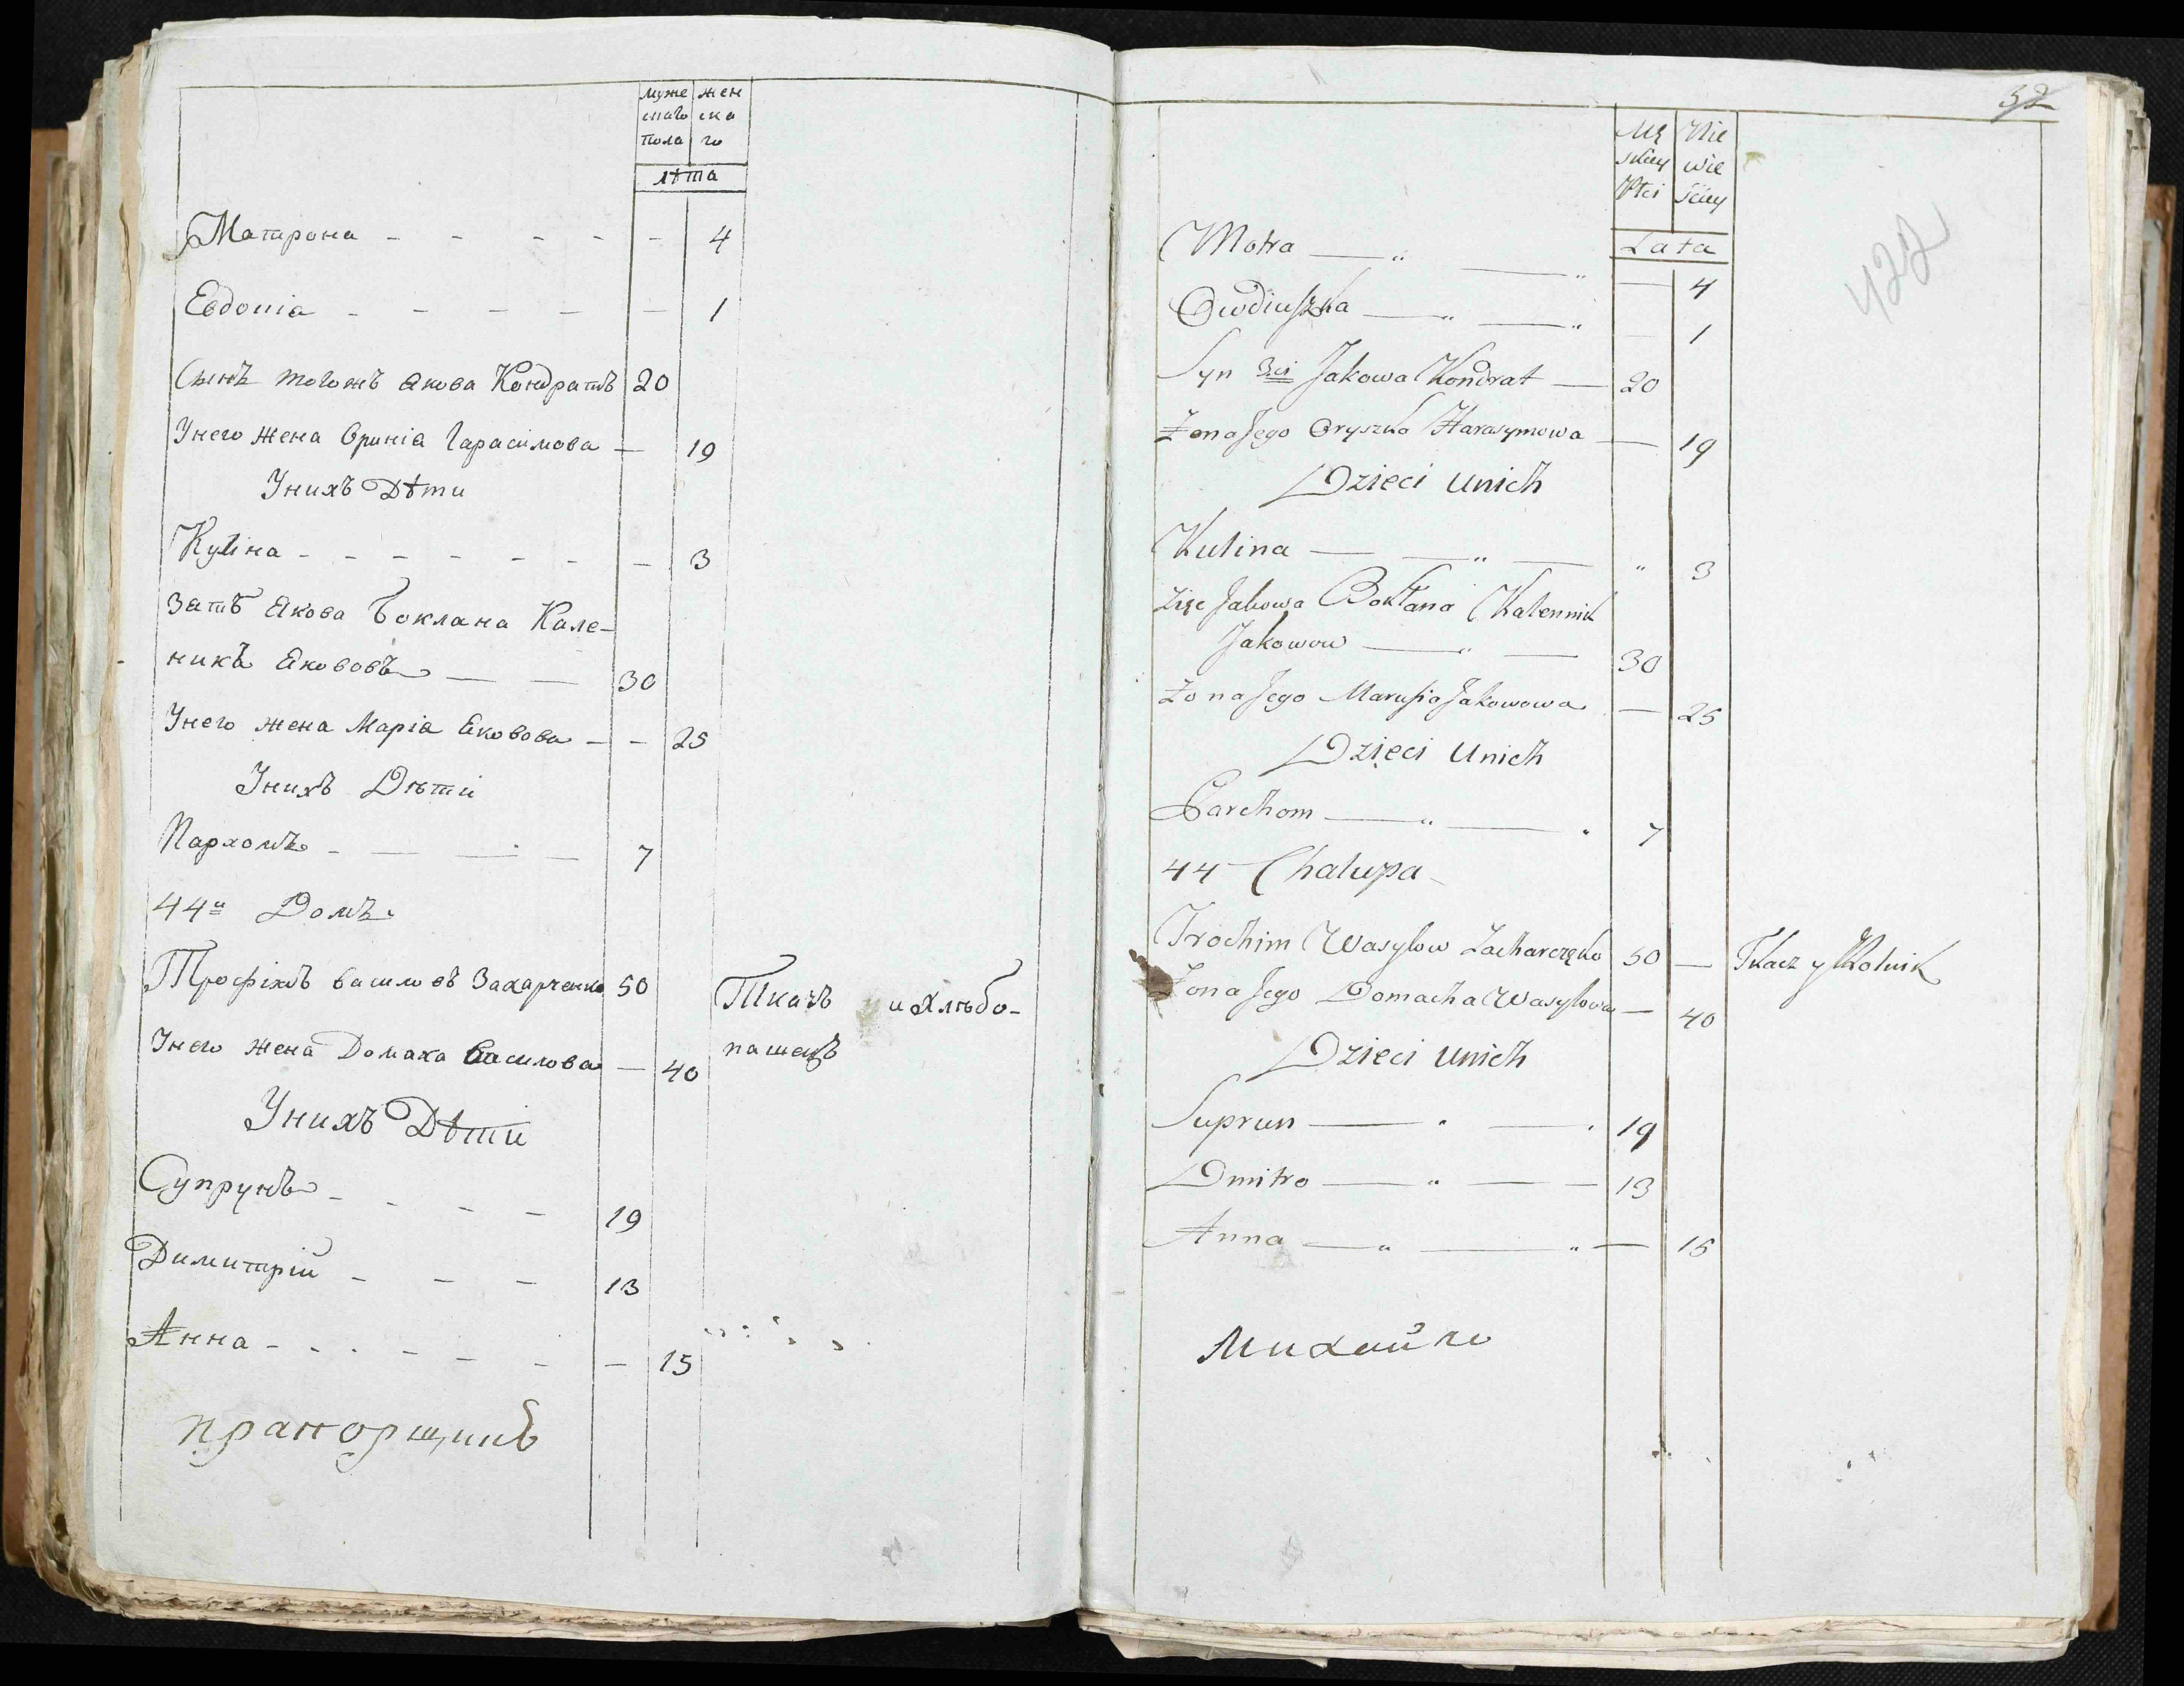 муже жен
скаго ска
пола го
лѣта
Матрона - - - - - 4
Евдокіа - - - - - 1
Сынъ тогожъ Якова Кондратъ 20
Унего жена Ориніа Гарасимова - 19
Унихъ Дѣти
Куліна - - - - - - - 3
Зять Якова Боклана Кале-
никъ Яковов - - 30
Унего жена Маріа Яковова - - 25
Унихъ Дѣти
Пархомъ - - - - 7
44й Домъ
Трофімъ василовъ Захарченко 50 Ткачъ и хлѣбо-
Унего жена Домаха Василова - 40 пашецъ
Унихъ Дѣти
Супрунъ - - - - 19
Димитрій - - - 13
Анна - - - - - - - 15
прапорщикъ
52
Mę Nie
skiey wie
Płci ściey
Lata
422
Motra — „ — „ — 4
Owdiuszka — „ — „ — 1
Syn Jakowa Kondrat — 20
Żona Jego Oryszka Harasymowa — 19
Dzieci Unich
Kulina — — „ — „ 3
Zięc Jakowa Bokłana Kalennik
Jakowow — „ — 30
Żona Jego Marusia Jakowowa — 25
Dzieci Unich
Parchom — „ — „ 7
44 Chalupa
Trochim Wasylow Zacharczęko 50 — Tkacz y Rolnik
Żona Jego Domacha Wasylowa — 40
Dzieci Unich
Suprun — „ — „ 19
Dmitro — „ — — 13
Anna — „ — „ — 15
Михайло